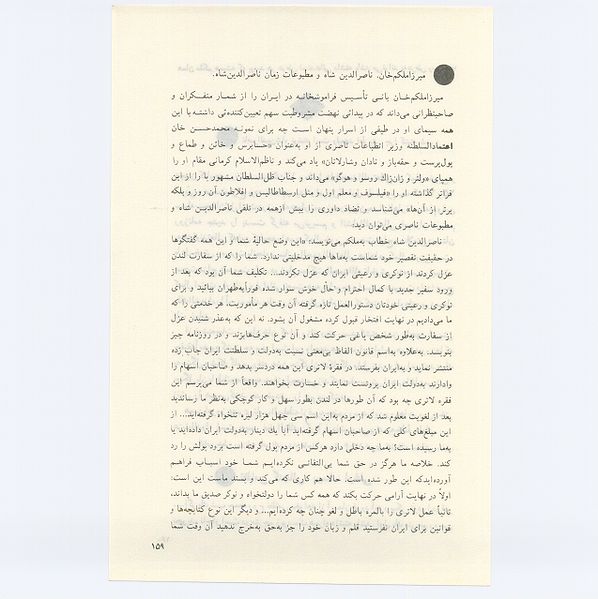 میرزاملکم‌خان، ناصرالدین شاه و مطبوعات زمان ناصرالدین‌شاه.
میرزاملکم‌خان بانی تأسیس فراموشخانه در ایران را از شمار متفکران و
صاحبنظرانی می‌داند که در پیدائی نهضت مشروطیت سهم تعیین‌کننده‌ئی داشته با این
همه سیمای او در طیفی از اسرار پنهان است چه برای نمونه محمدحسن خان
اعتمادالسلطنه وزیر انطباعات ناصری از او به‌عنوان «حسابرس و خائن و طماع و
پول‌پرست و حقه‌باز و نادان و شارلاتان» یاد می‌کند و ناظم‌الاسلام کرمانی مقام او را
همپای «ولتر و ژان‌ژاک روسو و هوگو» می‌داند و جناب ظل‌السلطان مشهور پا را از این
فراتر گذاشته او را «فیلسوف و معلم اول و مثل ارسطاطالیس و افلاطون آن روز و بلکه
برتر از آن‌ها» می‌شناسد و تضاد داوری را بیش ازهمه در تلقی ناصرالدین شاه و
مطبوعات ناصری می‌توان دید:
ناصرالدین شاه خطاب به‌ملکم می‌نویسد: «این وضع حالیهٔ شما و این همه گفتگوها
در حقیقت تقصیر خود شماست به‌ماها هیچ مدخلیتی ندارد. شما را که از سفارت لندن
عزل کردند از نوکری و رعیتی ایران که عزل نکردند... تکلیف شما آن بود که بعد از
ورود سفیر جدید با کمال احترام و حال خوش سوار شده فوراً به‌طهران بیائید و برای
نوکری و رعیتی خودتان دستورالعمل تازه گرفته آن وقت هر مأموریت، هر خدمتی را که
ما می‌دادیم در نهایت افتخار قبول کرده مشغول آن بشود. نه این که به‌عذر شنیدن عزل
از سفارت به‌طور شخص یاغی حرکت کند و آن نوع حرف‌هابزند و در روزنامه چیز
بنویسد. به‌علاوه به‌اسم قانون الفاظ بی‌معنی نسبت به‌دولت و سلطنت ایران چاپ زده
منتشر نماید و به‌ایران بفرستد. در فقرهٔ لاتری این همه دردسر بدهد و صاحبان اسهام را
وادارند به‌دولت ایران پروتست نمایند و خسارت بخواهند. واقعاً از شما می‌پرسم این
فقره لاتری چه بود که آن طورها در لندن بطور سهل و کار کوچکی به‌نظر ما رساندید
بعد از لغویت معلوم شد که از مردم به‌این اسم سی چهل هزار لیره تنخواه گرفته‌اید... از
این مبلغ‌های کلی که از صاحبان اسهام گرفته‌اید آیا یك دینار به‌دولت ایران داده‌اید یا
به‌ما رسیده است؟ به‌ما چه دخلی دارد هرکس از مردم پول گرفته است برود پولش را رد
کند. خلاصه ما هرگز در حق شما بی‌التفاتی نکرده‌ایم شما خود اسباب فراهم
آورده‌ایدکه این طور شده است. حالا هم کاری که می‌کند و پسند ماست این است:
اولاً در نهایت آرامی حرکت بکند که همه کس شما را دولتخواه و نوکر صدیق ما بداند.
ثانیاً عمل لاتری را بالمره باطل و لغو چنان چه کرده‌ایم... و دیگر این نوع کتابچه‌ها و
قوانین برای ایران نفرستید قلم و زبان خود را جز به‌حق به‌خرج ندهید آن وقت شما
۱۵۹